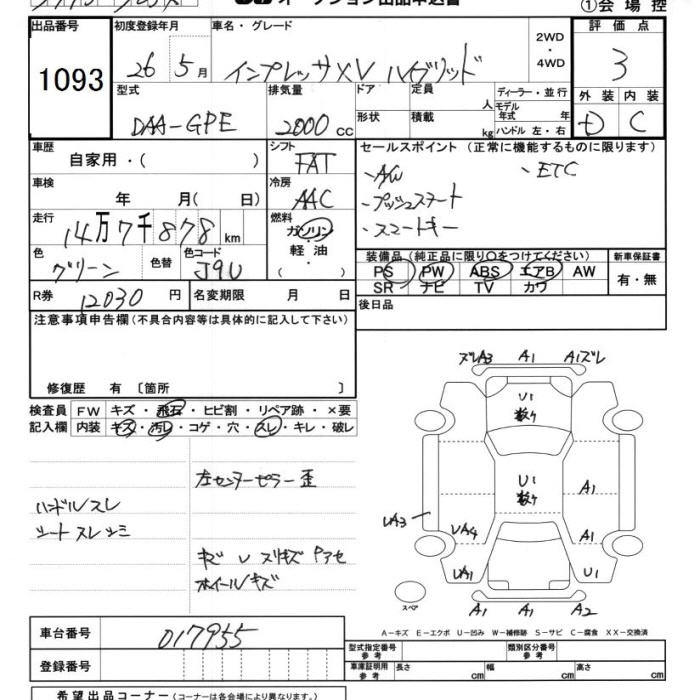 オークション出品申込書 ①会場控
出品番号 初度登録年月 車名・グレード 2WD・4WD 評価点
1093 26年5月 インプレッサXV ハイブリッド 3
型式 排気量 ドア 定員 人 ディーラー・並行 外装 内装
モデル年式 年
DAA-GPE 2000cc 形状 積載 kg ハンドル 左・右 D C
車歴 自家用・( ) シフト FAT セールスポイント (正常に機能するものに限ります)
車検 年 月( 日) 冷房 AAC ・AW ・ETC
・プッシュスタート
走行 14万7千878km 燃料 ガソリン・軽油・( ) ・スマートキー
色 グリーン 色替 色コード J9U 装備品 (純正品に限り○をつけてください) 新車保証書
PS PW ABS エアB AW 有・無
SR ナビ TV カワ
R券 12030円 名変期限 月 日 後日品
注意事項申告欄 (不具合内容等は具体的に記入して下さい)
修復歴 有 〔箇所 〕
検査員 FW キズ・飛石・ヒビ割・リペア跡・×要
記入欄 内装 キズ・汚レ・コゲ・穴・スレ・キレ・破レ
ズレA3 A1 A1ズレ
U1
数ヶ
左センターピラー歪
U1
数ヶ
A1
ハンドルスレ
シートスレシミ
UA3 UA4 A1
キズ U スリキズ
ホイールキズ
UA1 U1
スペア A1 A1 A2
車台番号 017955
A-キズ E-エクボ U-凹み W-補修跡 S-サビ C-腐食 XX-交換済
登録番号
型式指定番号 参考 類別区分番号 参考
車庫証明用 参考 長さ cm 幅 cm 高さ cm
希望出品コーナー (コーナーは各会場により異なります。)